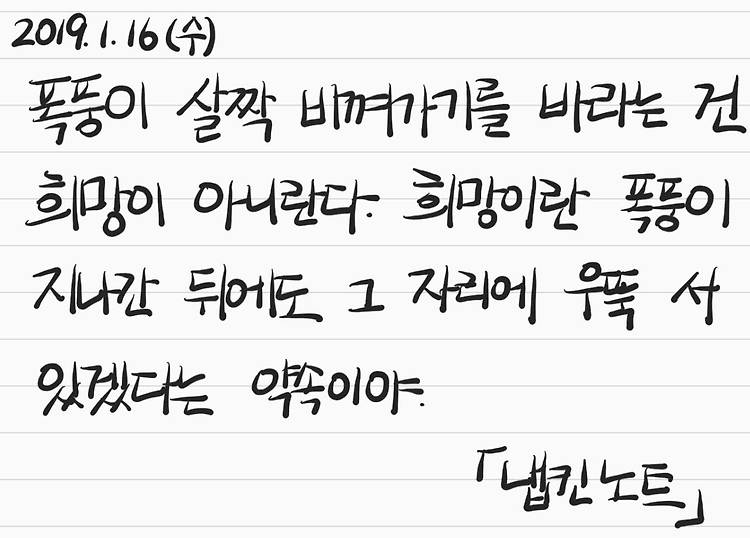 2019. 1. 16 (수)
폭풍이 살짝 비껴가기를 바라는 건
희망이 아니란다. 희망이란 폭풍이
지나간 뒤에도 그 자리에 우뚝 서
있겠다는 약속이야.
「냅킨노트」